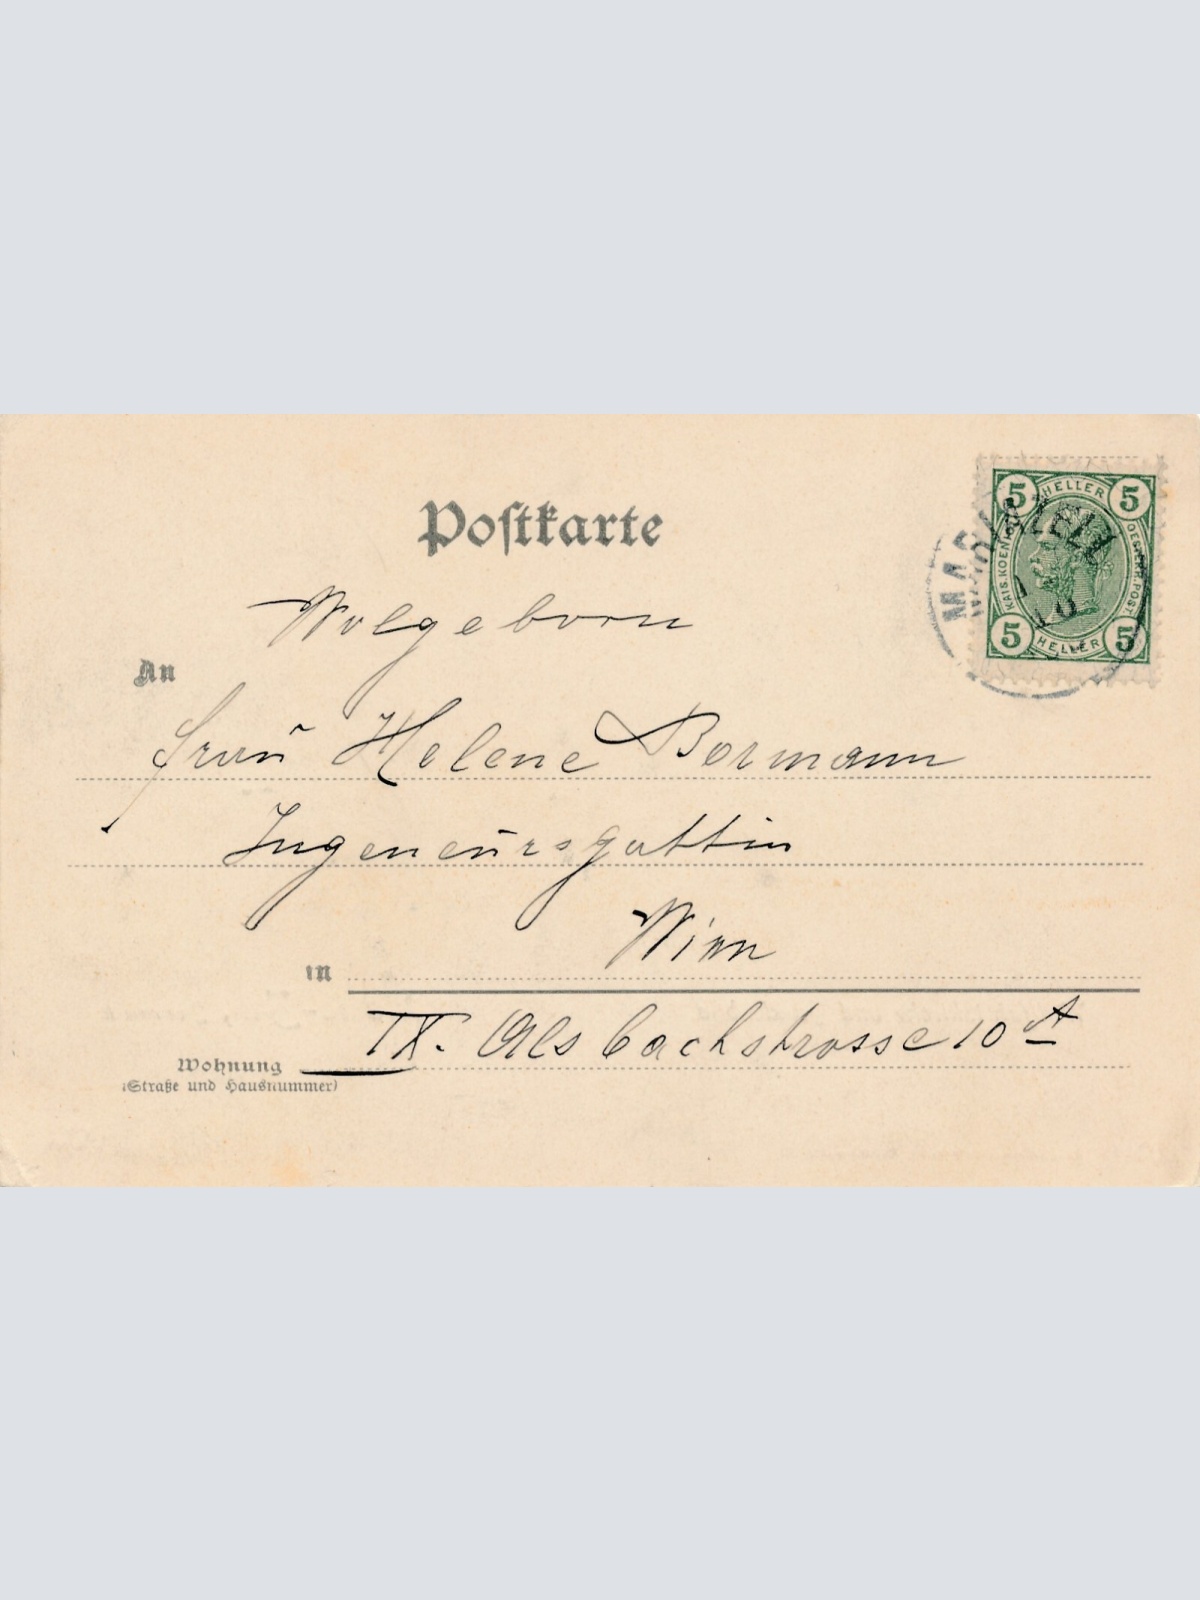 Postkarte
Wolgeborn
An
Frau Helene Bormann
Ingeneursgattin
in Wien
IX. Alsbachstrasse 10 A
Wohnung
(Straße und Hausnummer)
5 HELLER 5
KAIS. KOENIGL. OESTERR. POST
5 HELLER 5
MARIAZELL